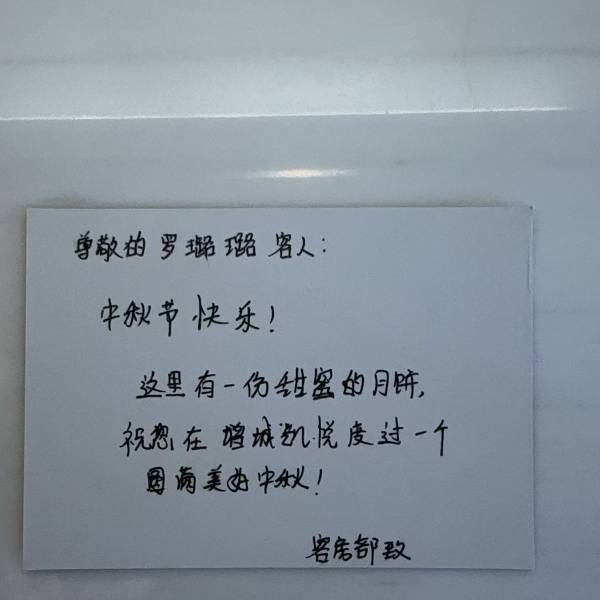 尊敬的罗璐璐客人：
中秋节快乐！
这里有一份甜蜜的月饼，
祝您在增城凯悦度过一个
圆满美好中秋！
客房部致